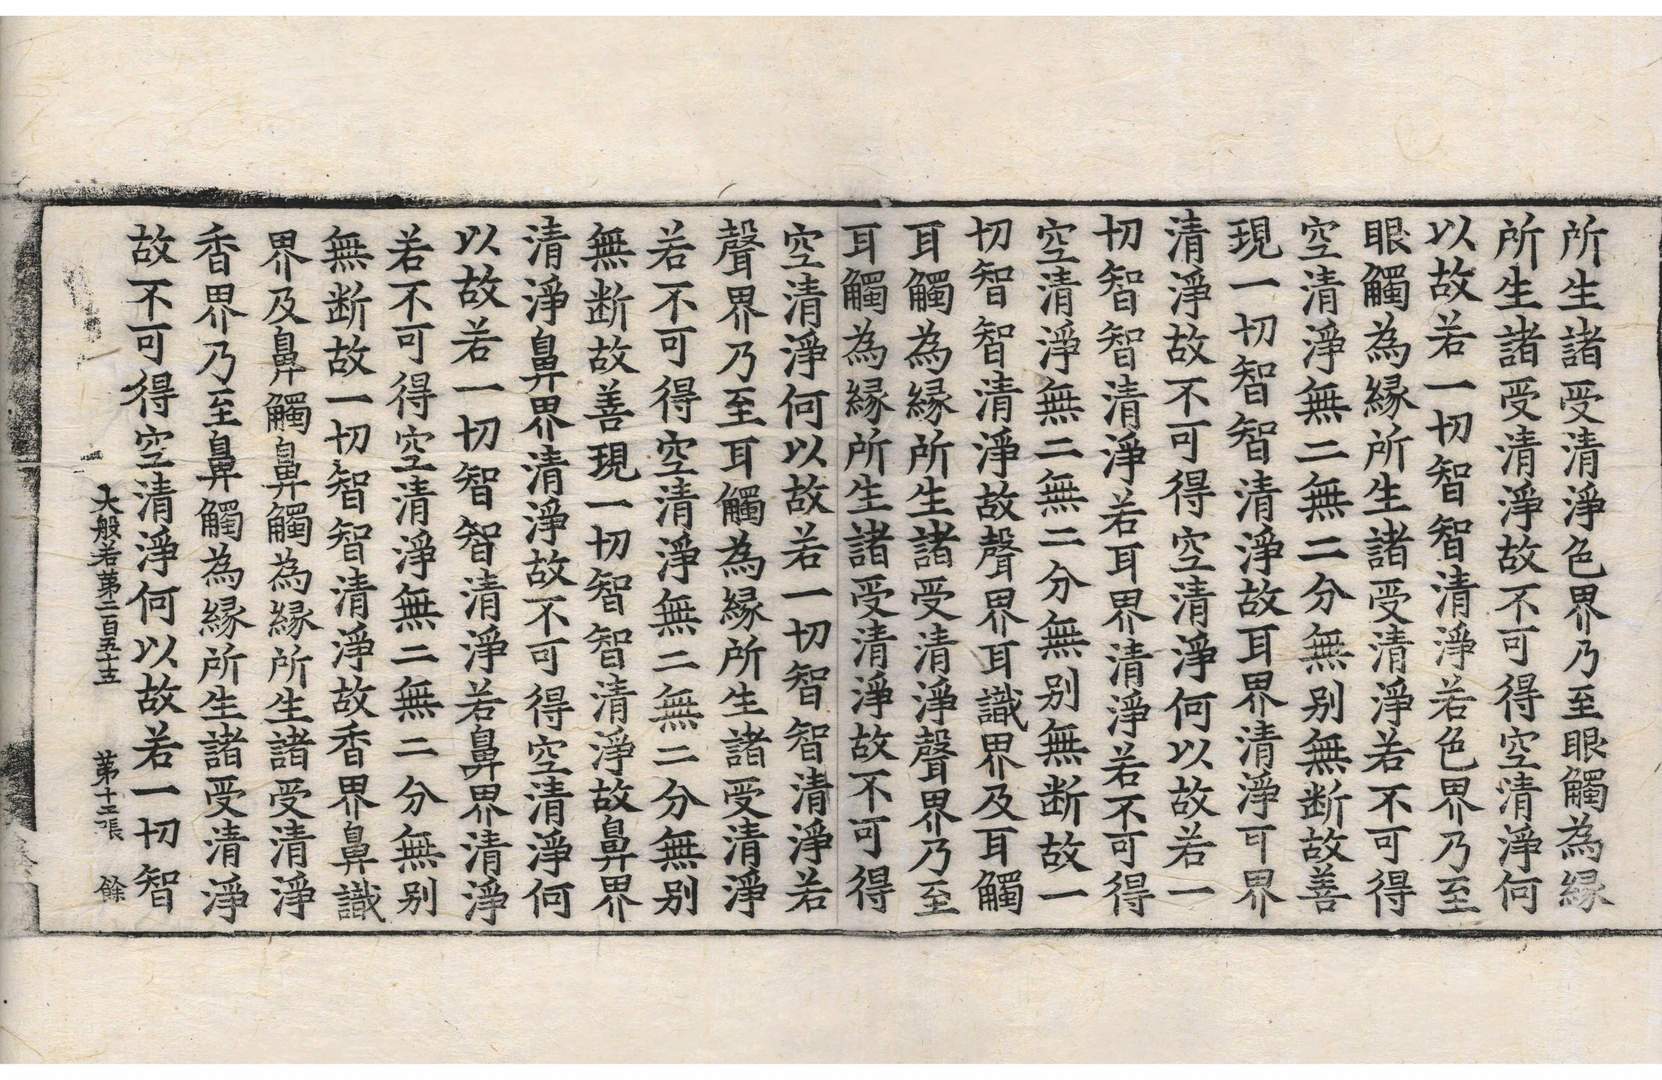 所生諸受清淨色界乃至眼觸為縁
所生諸受清淨故不可得空清淨何
以故若一切智智清淨若色界乃至
眼觸為縁所生諸受清淨若不可得
空清淨無二無二分無别無断故善
現一切智智清淨故耳界清淨耳界
清淨故不可得空清淨何以故若一
切智智清淨若耳界清淨若不可得
空清淨無二無二分無别無断故一
切智智清淨故聲界耳識界及耳觸
耳觸為縁所生諸受清淨聲界乃至
耳觸為縁所生諸受清淨故不可得
空清淨何以故若一切智智清淨若
聲界乃至耳觸為縁所生諸受清淨
若不可得空清淨無二無二分無别
無断故善現一切智智清淨故鼻界
清淨鼻界清淨故不可得空清淨何
以故若一切智智清淨若鼻界清淨
若不可得空清淨無二無二分無别
無断故一切智智清淨故香界鼻識
界及鼻觸鼻觸為縁所生諸受清淨
香界乃至鼻觸為縁所生諸受清淨
故不可得空清淨何以故若一切智
大般若第二百五十五 第十二張 餘